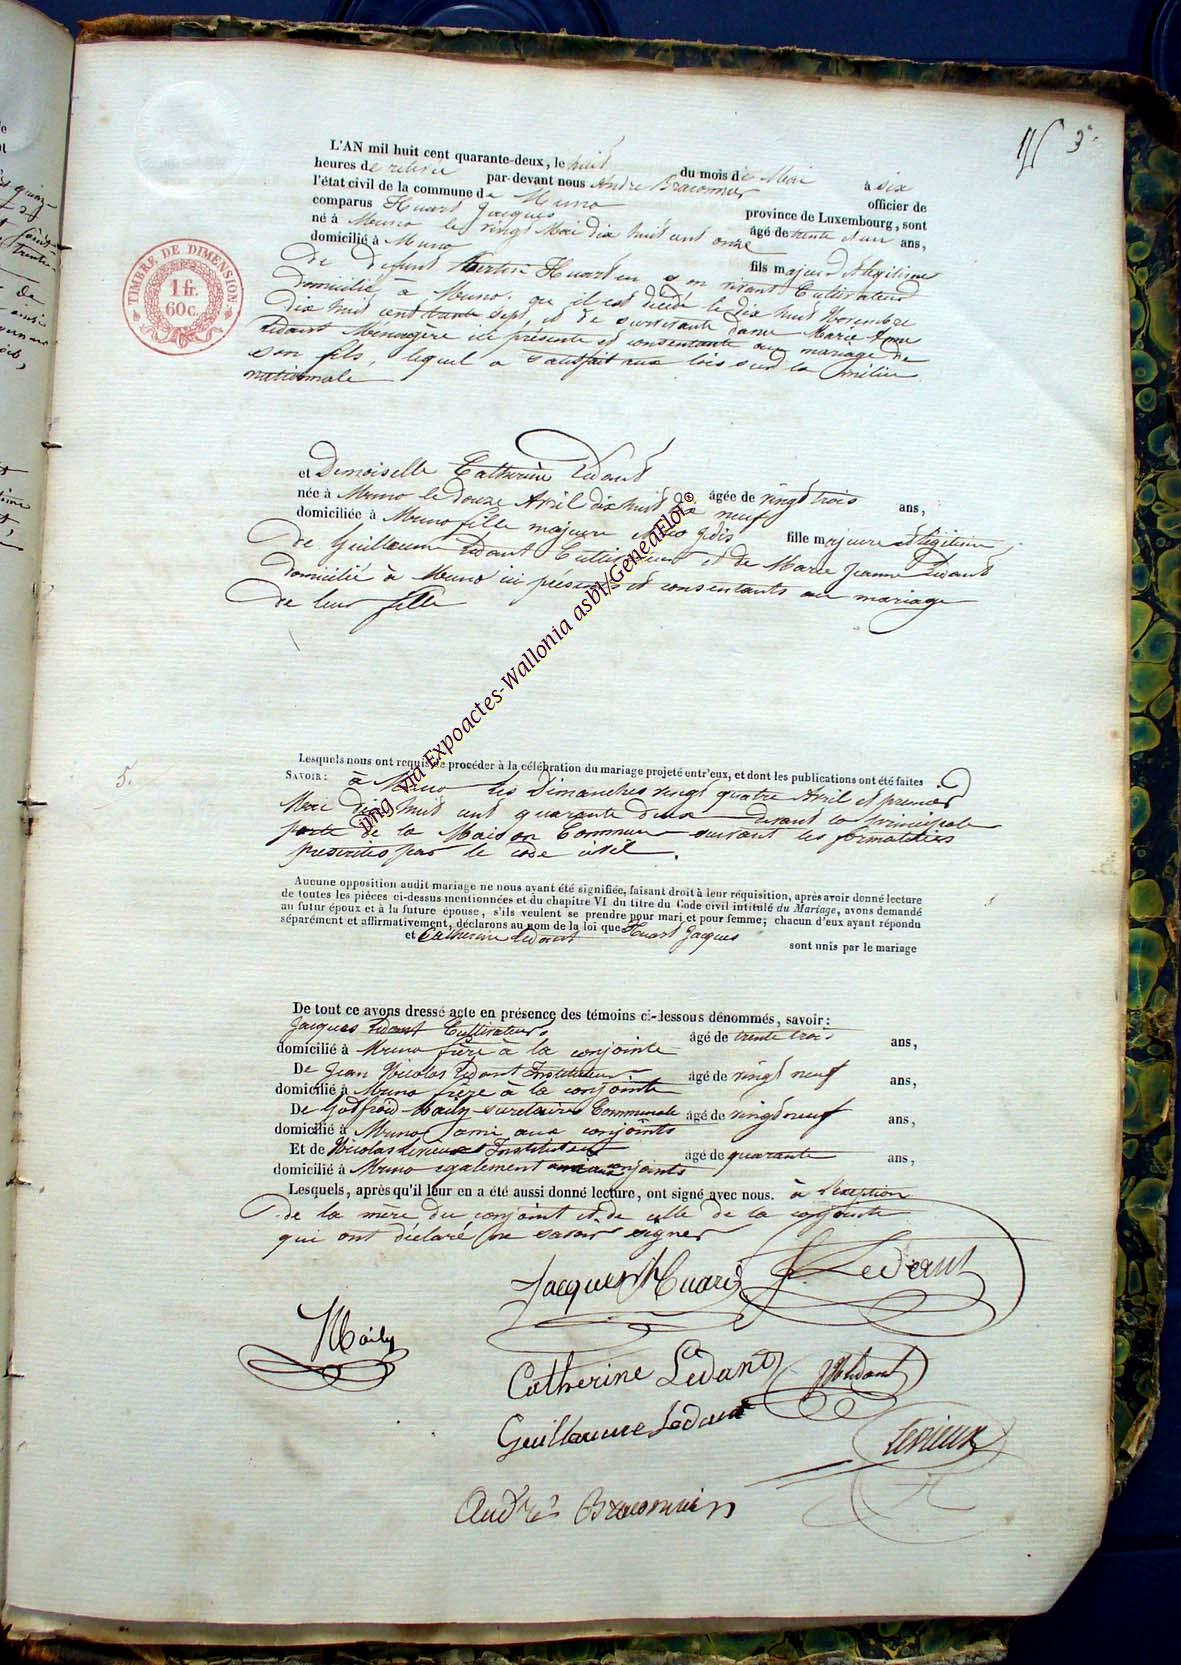 3e
L'AN mil huit cent quarante-deux, le huit du mois de Mai à six
heures de relevée par-devant nous André Braconnier officier de
l'état civil de la commune de Muno province de Luxembourg, sont
comparus Huart Jacques âgé de trente et un ans,
né à Muno le vingt Mai dix huit cent onze
domicilié à Muno fils majeur et légitime
de défunt Huart en son vivant Cultivateur
domicilié à Muno, où il est décédé le dix huit Novembre
dix huit cent trente sept, et de survivante dame Marie Anne
Ledant Ménagère ici présente et consentante au mariage de
son fils, lequel a satisfait aux lois sur la milice
nationale
TIMBRE DE DIMENSION
1 fr.
60 c.
et Demoiselle Catherine Ledant
âgée de vingt trois ans,
née à Muno le douze Avril dix huit cent dix neuf
domiciliée à Muno fille majeure fille majeure et légitime
de Guillaume Ledant Cultivateur et de Marie Jeanne Ledant
domicilié à Muno ici présents et consentants au mariage
de leur fille
img via Expoactes-Wallonia asbl/GeneaFloi©
5.
Lesquels nous ont requis de procéder à la célébration du mariage projeté entr'eux, et dont les publications ont été faites
SAVOIR: à Muno les Dimanches vingt quatre Avril et premier
Mai dix huit cent quarante deux devant la principale
porte de la Maison Commune suivant les formalités
prescrites par le code civil.
Aucune opposition audit mariage ne nous ayant été signifiée, faisant droit à leur réquisition, après avoir donné lecture
de toutes les pièces ci-dessus mentionnées et du chapitre VI du titre du Code civil intitulé du Mariage, avons demandé
au futur époux et à la future épouse, s'ils veulent se prendre pour mari et pour femme; chacun d'eux ayant répondu
séparément et affirmativement, déclarons au nom de la loi que Huart Jacques
et Catherine Ledant sont unis par le mariage
De tout ce avons dressé acte en présence des témoins ci-dessous dénommés, savoir:
Jacques Ledant Cultivateur âgé de trente trois ans,
domicilié à Muno frère à la conjointe
De Jean Nicolas Ledant Instituteur âgé de vingt neuf ans,
domicilié à Muno frère à la conjointe
De Godfroid Mailly secrétaire Communale âgé de vingt neuf ans,
domicilié à Muno ami aux conjoints
Et de Nicolas Lerieux Instituteur âgé de quarante ans,
domicilié à Muno également ami aux conjoints
Lesquels, après qu'il leur en a été aussi donné lecture, ont signé avec nous. à l'exception
de la mère du conjoint et de celle de la conjointe
qui ont déclaré ne savoir signer
Jacques Huart J. Ledant
Mailly
Catherine Ledant JNLedant
Guillaume Ledant Lerieux
André Braconnier